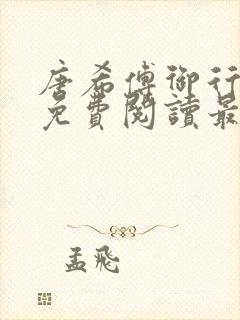 唐希傅御行
免費閱讀最
孟飛